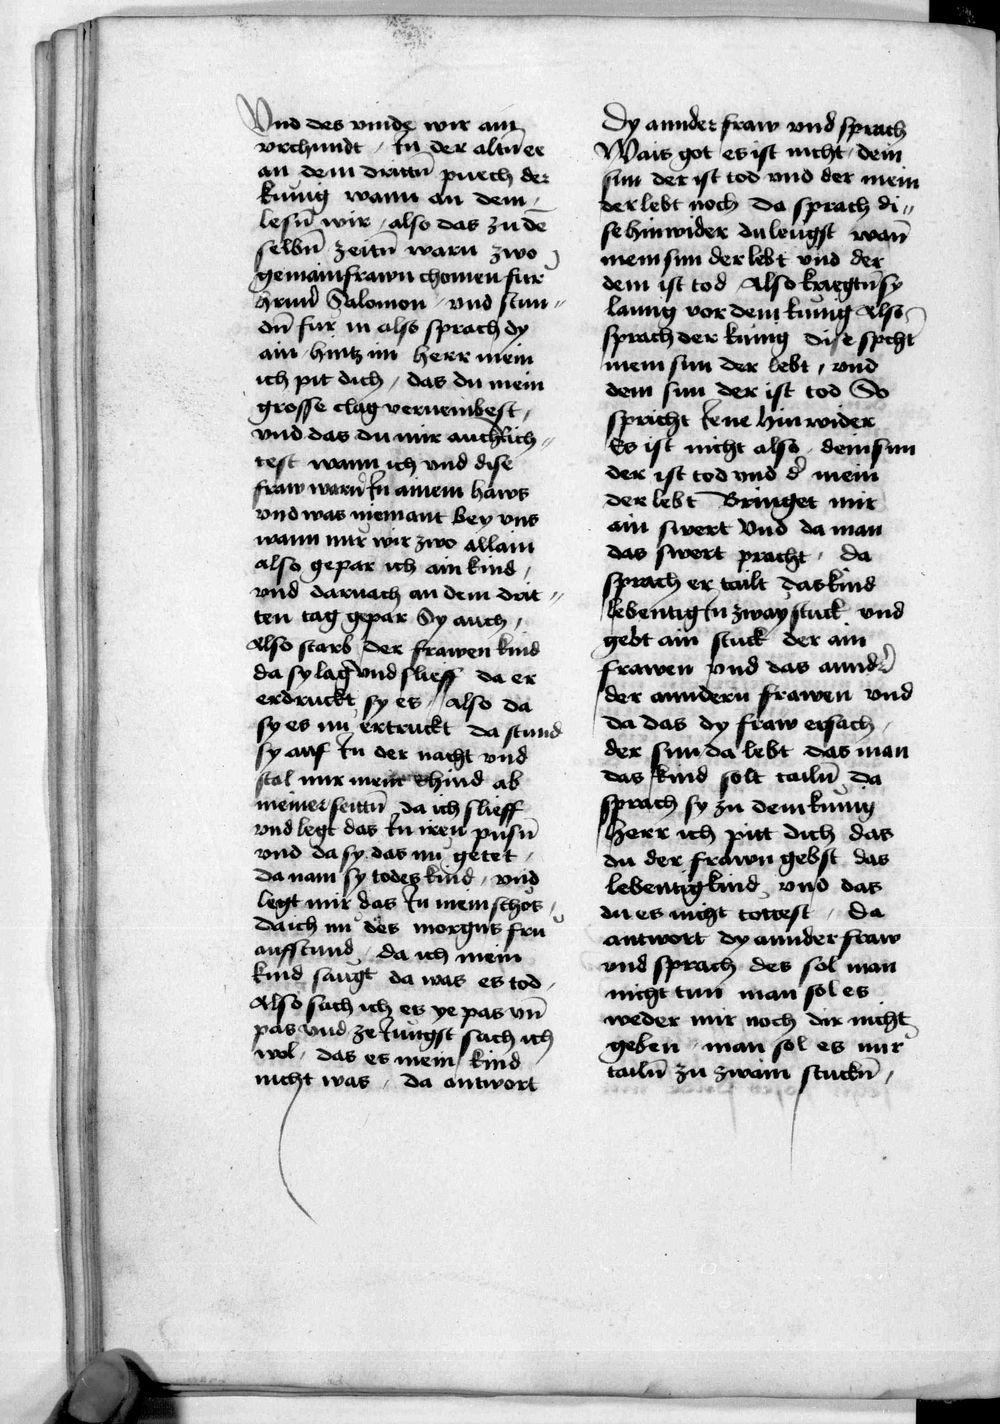 Vnd des vinde wir ain
vrchundt / In der altn̄ ee
an dem dritttn̄ puech der
kunig wann an dem /
lesn̄ wir / also das zu dē
selbn̄ zeitn̄ warn zwo
gemainfrawn chomen fur
Salomon / vnd stun //
dn̄ fur in also sprach dy
ain / hintz im herr mein
ich pit dich / das du mein
grosse clag vernembest /
vnd das du mir auch rich //
test wann ich vnd dise
fraw warn̄ In ainem haws
vnd was niemant bey vns
wann nur wir zwo allain
also gepar ich ain kind /
vnd darnach an dem drit //
ten tag gepar Sy auch /
Also starb der frawen kind
da sy lag vnd slieff da er
erdruckt sy es / also da
sy es nu ertruckt da stund
sy auf In der nacht vnd
stal mir mein chind ab
meiner seittn̄ da ich slieff
vnd legt das In iren pusn̄
vnd da sy das nu getet /
da nam sy todes kind / vnd
legt mir das In mein schos /
da ich nu des morgns fru
aufstund / da ich mein
kind saugt da was es tod /
Also sach ich es ye pas vn̄
pas vnd ze Iungst sach ich
wol / das es mein kind
nicht was / da antwort
Dy annder fraw vnd sprach
Wais got es ist nicht / dein
sun der ist tod vnd der mein
der lebt noch da sprach di //
se hinwider du leugst wan̄
mein sun der lebt vnd der
dein ist tod Also kriegtn̄ sy
lanng vor dem kunig Also
sprach der kunig dise spcht
mein sun der lebt / vnd
dein sun der ist tod So
spricht Iene hinwider
Es ist nicht also / dein sun
der ist tod vnd d' mein
der lebt Bringet mir
ain swert Vnd da man
das swert pracht / da
sprach er tailt das kind
lebentig In zway stuck vnd
gebt ain stuck der ain
frawen vnd das annd'
der anndern frawen vnd
da das dy fraw ersach /
der sun da lebt das man
das kind solt tailn̄ da
sprach sy zu dem kunig
herr ich pitt dich das
du der frawn gebst das
lebentig kind vnd das
du es nicht tottest / da
antwort dy annder fraw
vnd sprach des sol man
nicht tun man sol es
weder mir noch dir nicht
geben / man sol es nur
tailn̄ zu zwain stuckn̄ /